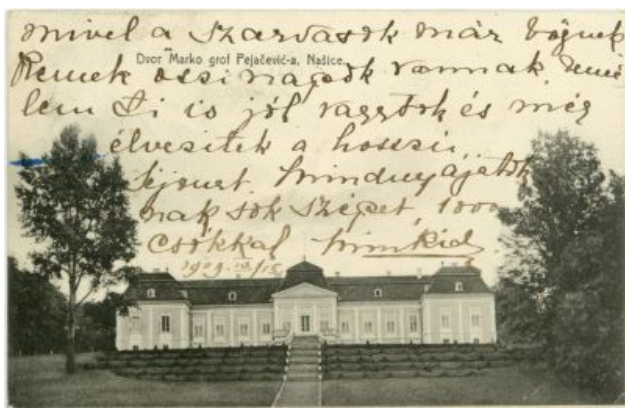 mivel a szarvasok már bőgnek
Dvor Marko grof Pejačević-a, Našice.
Remek őszi napok vannak, remé
lem Ti is jól vagytok és még
élvezitek a hosszú
Mindnyájatok
nak sok szépet, 1000
csókkal
1909 IX/15